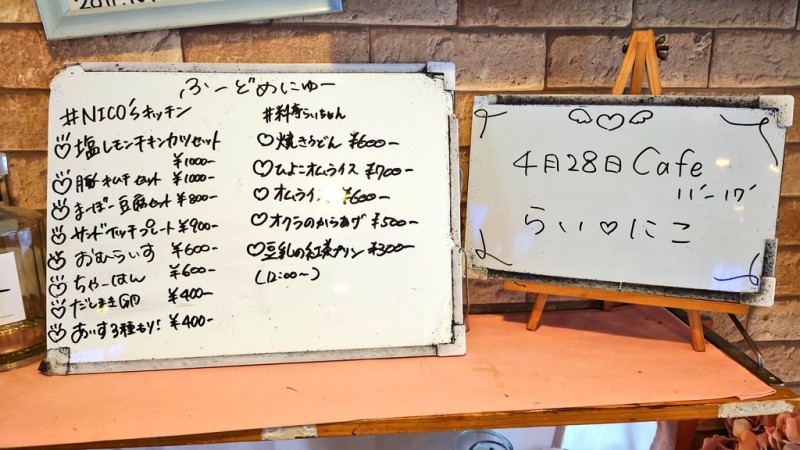 2017.10
ふーどめにゅー
#NICO'sキッチン
♡塩レモンチキンカツセット
¥1000-
♡豚キムチセット ¥1000-
♡まーぼー豆腐セット ¥800-
♡サンドイッチプレート ¥900-
♡おむらいす ¥600-
♡ちゃーはん ¥600-
♡だしまき ¥400-
♡あいす3種もり! ¥400-
#料亭らいちゃん
♡焼きうどん ¥600-
♡ひよこオムライス ¥700-
♡オムライ ¥600-
♡オクラのからあげ ¥500-
♡豆乳の紅茶プリン ¥300-
(12:00〜)
♡
4月28日 Cafe
11'-17'
らい♡にこ